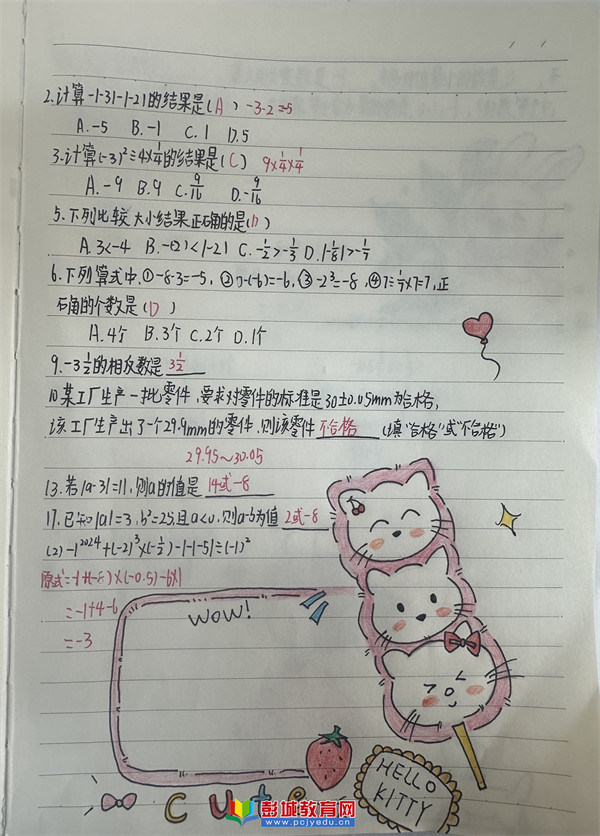 2.计算-|-3|-|-2|的结果是(A) -3-2=-5
A.-5 B.-1 C.1 D.5
3.计算(-3)²÷4×¼的结果是(C) 9×¼×¼
A.-9 B.9 C.9/16 D.-9/16
5.下列比较大小结果正确的是(D)
A.3<-4 B.-(-2)<|-2| C.-½>-⅓ D.|-⅛|>-1/7
6.下列算式中,①-8-3=-5,②0-(-6)=-6,③-2³=-8,④7÷1/7×7=7,正
确的个数是(D)
A.4个 B.3个 C.2个 D.1个
9.-3½的相反数是 3½
10.某工厂生产一批零件,要求对零件的标准是30±0.05mm为合格,
该工厂生产出了个29.9mm的零件.则该零件 不合格 (填"合格"或"不合格")
29.95~30.05
13.若|a-3|=11,则a的值是 14或-8
17.已知|a|=3,b²=25,且a<0,则a-b为值 2或-8
(2)-1²⁰²⁴+(-2)³×(-½)-|-1-5|÷(-1)²
原式=-1+(-8)×(-0.5)-6×1
=-1+4-6
=-3
WOW!
HELLO
KITTY
cute
彭城教育网
www.pcjyedu.cn